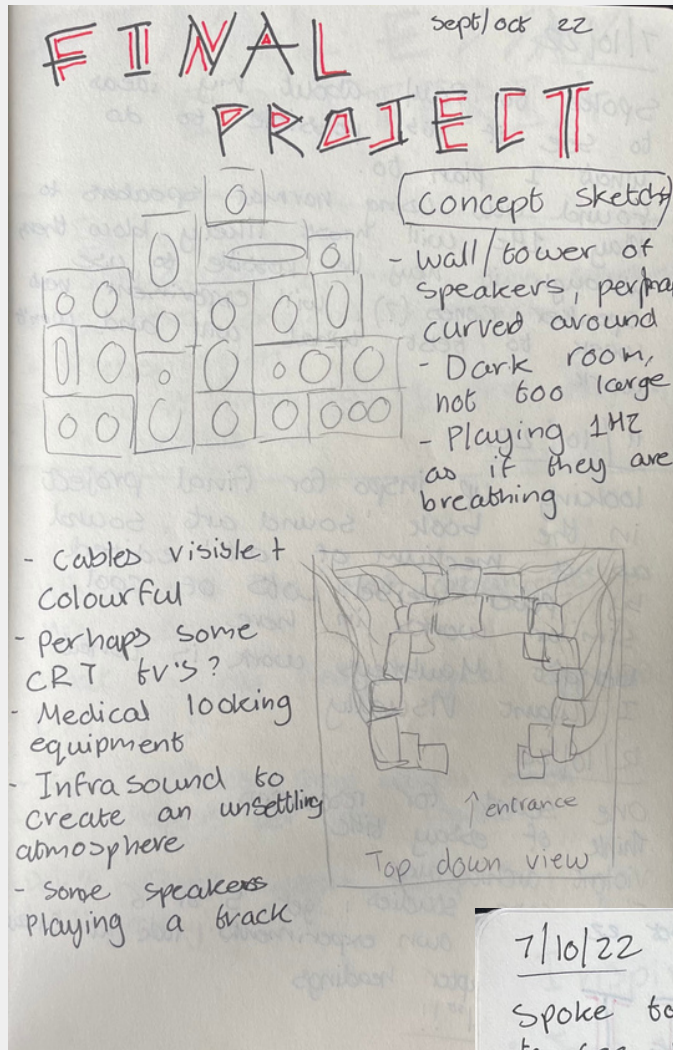 Sept/oct 22
FINAL
PROJECT
Concept Sketch
- Wall/tower of
speakers, perhaps
curved around
- Dark room,
not too large
- Playing 1Hz
as if they are
breathing
- Cables visible +
colourful
- Perhaps some
CRT tv's?
- Medical looking
equipment
- Infrasound to
create an unsettling
atmosphere
- Some speakers
playing a track
↑ entrance
Top down view
7/10/22
Spoke to